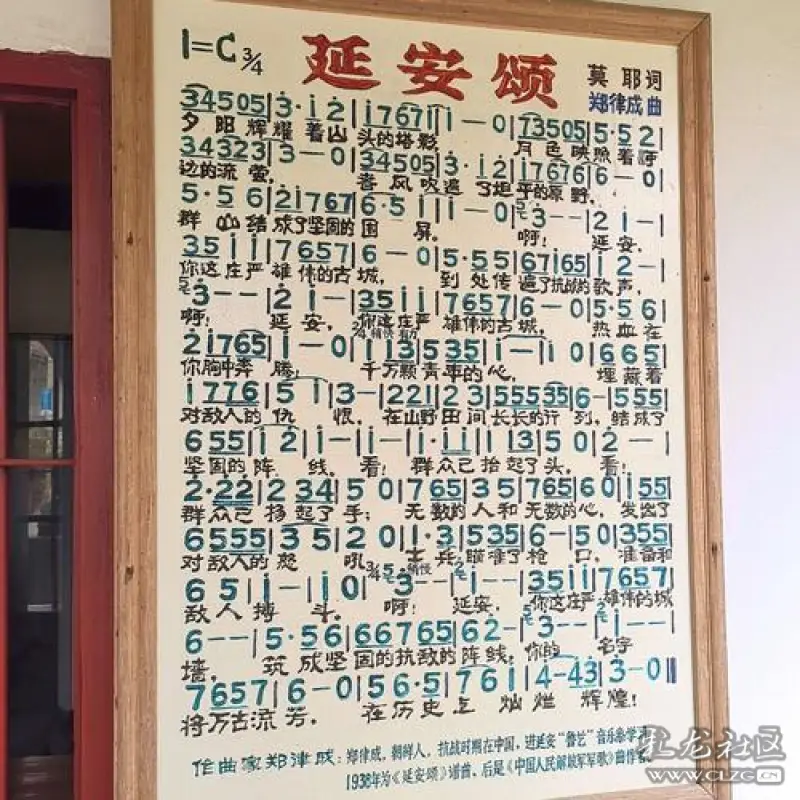 1=C 3/4 延安颂 莫耶词
郑律成曲
34505|3·i2|17671|i-0|73505|5·52|
夕阳辉耀着山头的塔影, 月色映照着河
34323|3-0|34505|3·i2|17676|6-0|
边的流萤, 春风吹遍了坦平的原野,
5·56|21767|6·5i|i-0|3--|2i-|
群山结成了坚固的围屏。 啊! 延安,
35ii|7657|6-0|5·55|67i65|i2-|
你这庄严雄伟的古城, 到处传遍了抗战的歌声,
3--|2i-|35ii|7657|6-0|5·56|
啊! 延安, 你这庄严雄伟的古城, 热血在
2/4 稍慢 有力
2i765|i-0|113|535|i-|i0|665|
你胸中奔腾; 千万颗青年的心, 埋藏着
1776|5i|3-|221|23|55535|6-|555|
对敌人的仇恨, 在山野田间长长的行列, 结成了
655|i2|i-|i-|i·ii|113|50|2-|
坚固的阵线, 看! 群众已抬起了头, 看!
2·22|234|50|765|35|765|60|i55|
群众已扬起了手; 无数的人和无数的心, 发出了
6555|35|20|1·3|535|6-|50|355|
对敌人的怒吼, 士兵瞄准了枪口, 准备和
3/4 稍慢
65|i-|i0|3--|2i-|35ii|7657|
敌人搏斗。 啊! 延安, 你这庄严雄伟的城
6--|5·56|66765|62-|3--|2i-|
墙, 筑成坚固的抗敌的阵线; 你的名字
7657|6-0|56·5|76i|4-43|3-0‖
将万古流芳, 在历史上灿烂辉煌!
作曲家郑律成: 郑律成,朝鲜人,抗战时期在中国,进延安“鲁艺”音乐系学习
1938年为《延安颂》谱曲、后是《中国人民解放军军歌》曲作者
龙社区
WWW.CLZG.CN